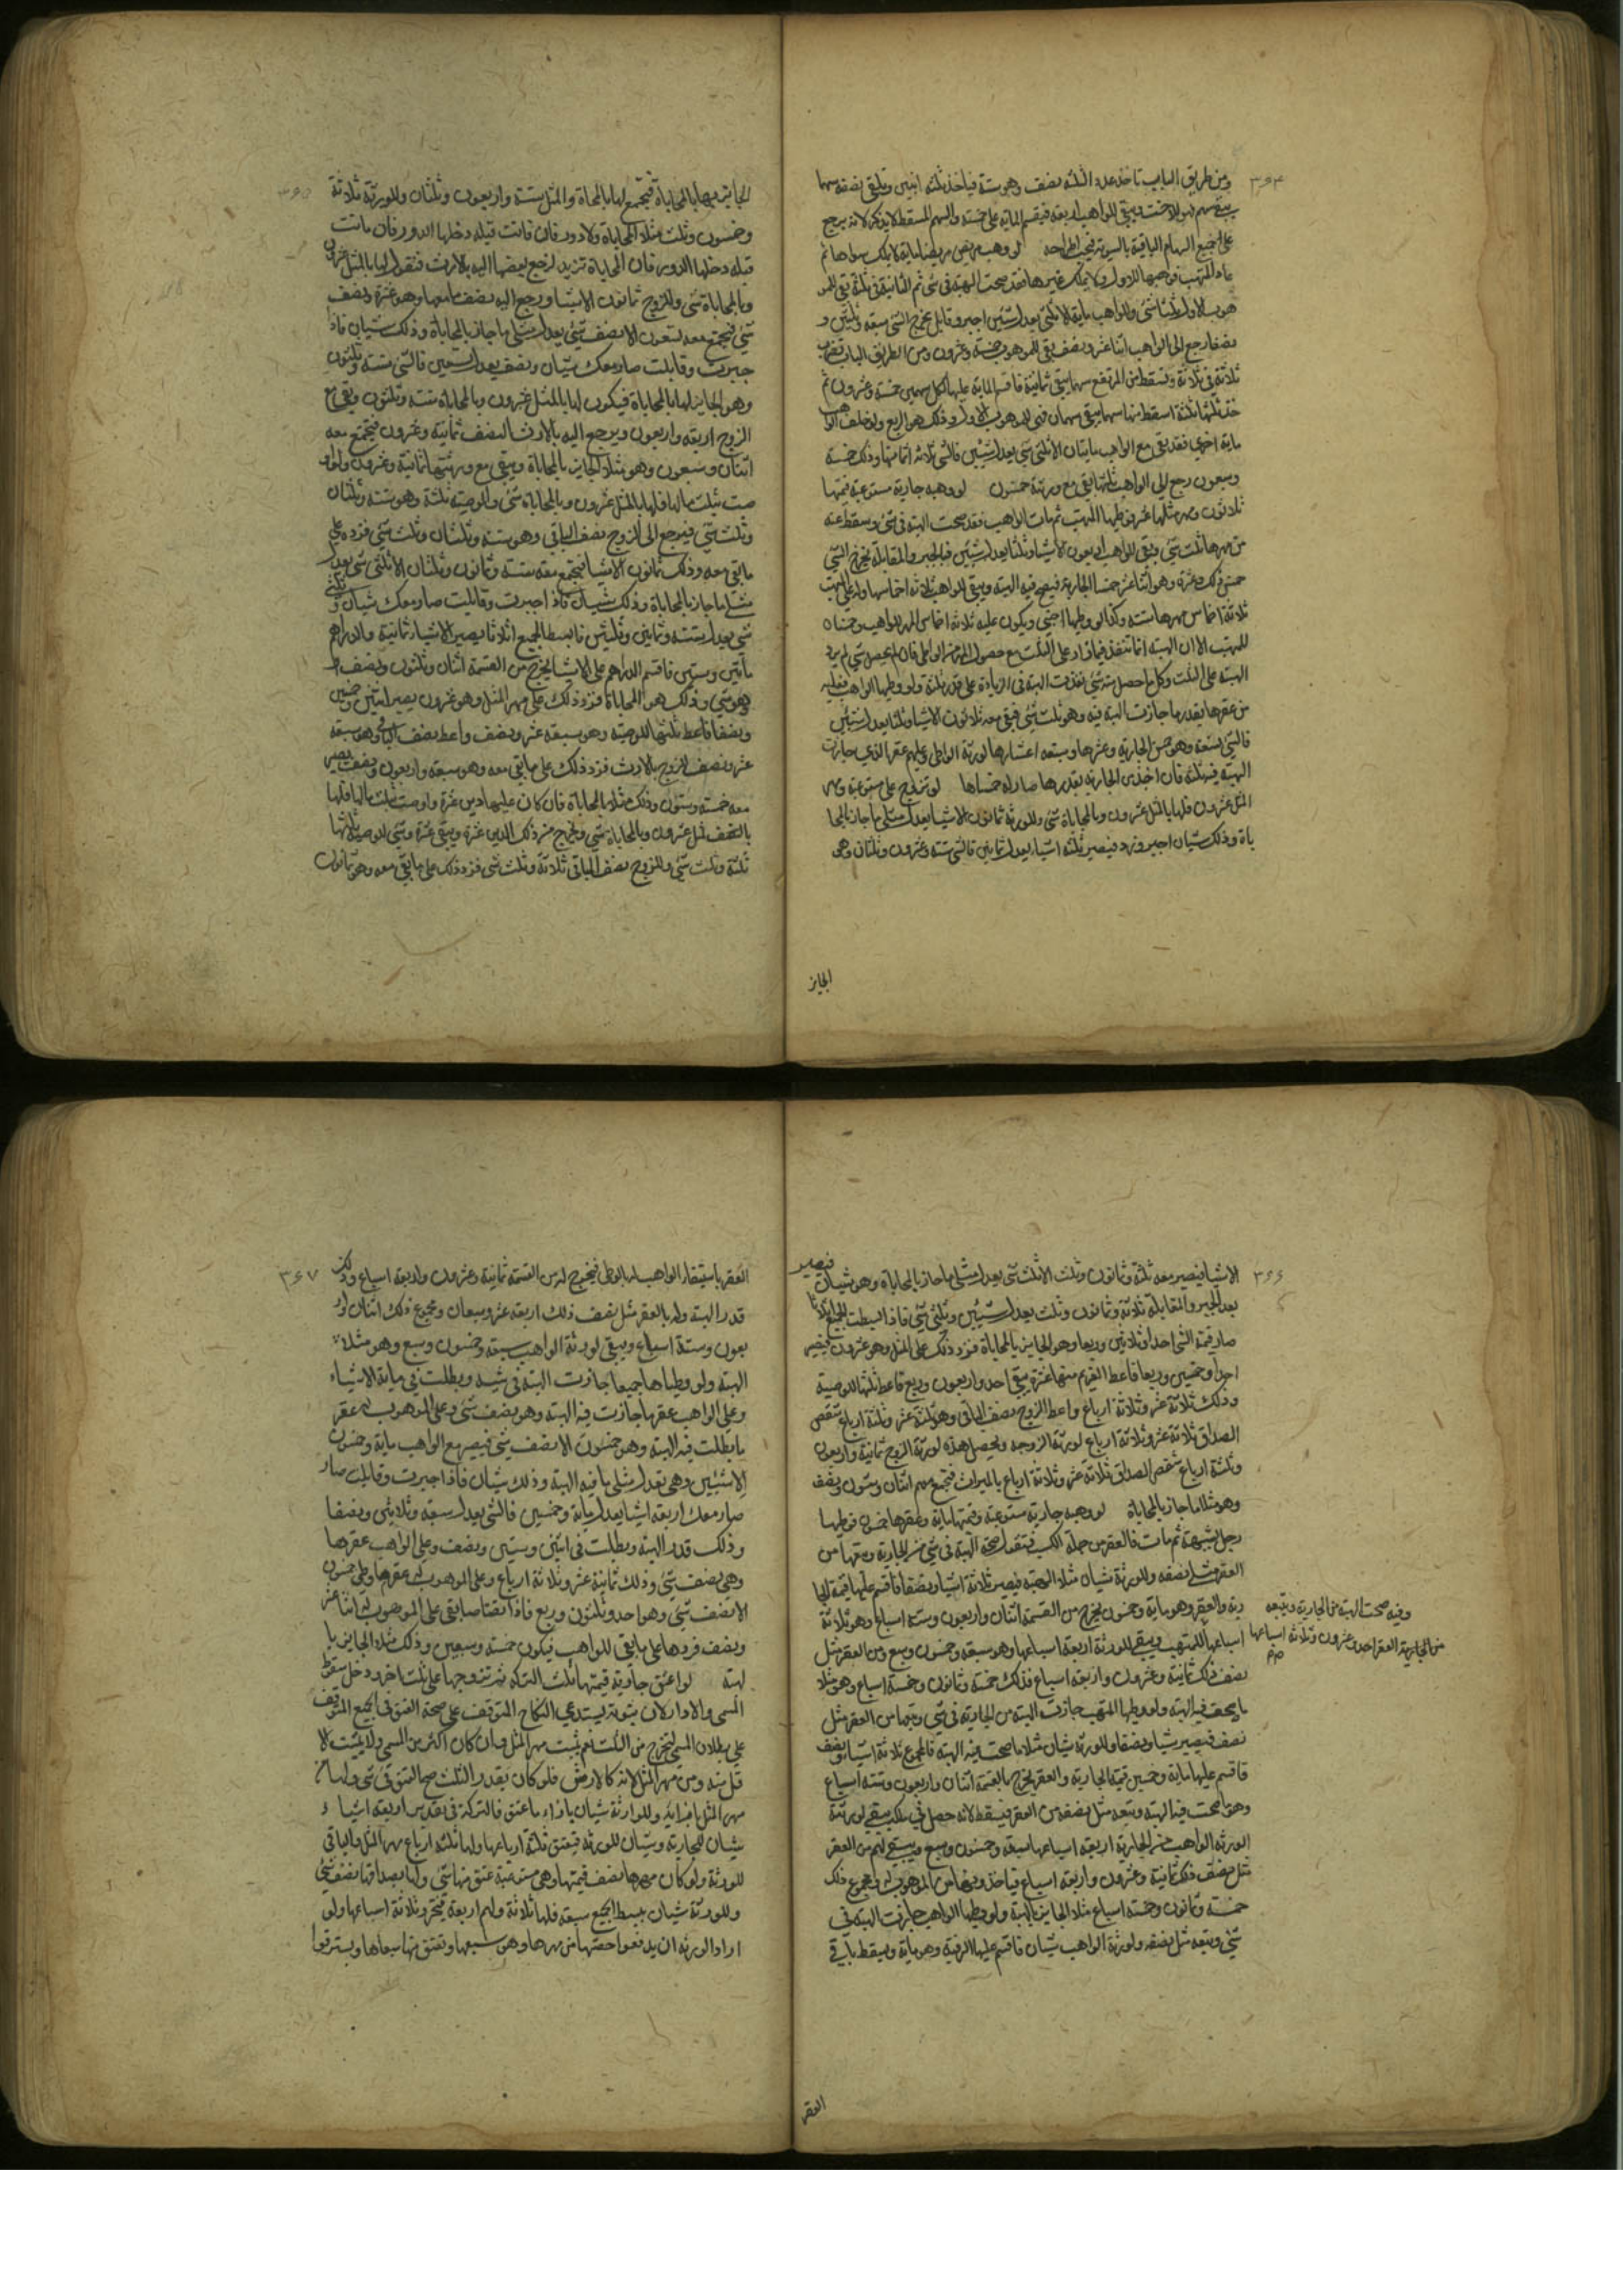 ٣٦٤
ومن طريق الباب تاخذ عدد الثلثه نصف وهو ستة فياخذ ثلثه اثنين وتلقى نصفه سهما
يبقى سهم فهو للاخت ويبقى للواهب اربعه فيقسم المائة على خمسة والسهم المسقط لا يذكر لانه يرجع
على جميع السهام الباقية بالسوية فيجب اطراحه لو وهب مريض مريضا مائة لا يملك سواها ثم
عاد المتهب فوهبها للاول ولا يملك غيرها فقد صحت الهبة في شئ ثم الثانية في ثلثه بقى للمو
هوب الاول ثلثا شئ وللواهب مائة الا ثلثى يعدل شيئين اجبر وقابل يخرج الشئ سبعه وثلثين و
نصفا رجع الى الواهب اثنا عشر ونصف بقى للموهوب خمسة وعشرون ومن الطريق الباب تضرب
ثلاثة في ثلاثة وتسقط من المرتفع سهما يبقى ثمانية فاقسم المائة عليها لكل سهمين خمسة وعشرون ثم
خذ ثلثها ثلثة اسقط منها سهما يبقى سهمان فهى للموهوب الاول وذلك هو الربع ولو خلف الواهب
ماية اخرى فقد بقى مع الواهب مايتان الا ثلثى شئ يعدل شيئين فالشئ ثلاثه اثمانها وذلك خمسة
وسبعون رجع الى الواهب ثلثها بقى مع ورثته خمسون لو وهبه جارية مستوعبة قيمتها
ثلاثون ومهر مثلها عشر فوطيها المتهب ثم مات الواهب فقد صحت الهبة في شئ وسقط عنه
من مهرها ثلث شئ وبقى للواهب اربعون الا شيئا وثلثا يعدل شيئين فبالجبر والمقابلة يخرج الشئ
خمس ذلك وعشره وهو اثنا عشر خمسا الجارية فيصح فيه الهبة ويبقى للواهب ثلاثه اخماسها وله على المتهب
ثلاثة اخماس مهرها ستة وكذا لو وطيها اجنبى ويكون عليه ثلاثة اخماس المهر للواهب وخمساه
للمتهب الا ان الهبة انما تنفذ فيما زاد على الثلث مع حصول المهر من الواطى فان لم يحصل شئ لم يزد
الهبة على الثلث وكل ما حصل منه شئ نفذت الهبة في الزيادة على قدر ثلثه ولو وطيها الواهب فعليه
من عقرها بقدر ما جازت الهبة فيه وهو ثلث شئ فبقى معه ثلاثون الا شيئا وثلثا يعدل شيئين
فالشئ تسعة وهو خمس الجارية وعشرها وسبعه اعشارها لورثة الواطى وعليهم عقر الذي جازت
الهبة فيه ثلثة فان اخذ من الجارية بقدرها صار له خمساها لو تزوج على مستوعبة ومهر
المثل عشرون فلها بالمثل عشرون وبالمحاباة شئ وللورثة ثمانون الا شيئا يعدل مثلى ما جاز بالمحا
باة وذلك شيئان اجبر وزد فيصير ثلثه اشيا يعدل ثمانين فالشئ ستة وعشرون وثلثان وهو
الجايز
٣٦٥
الجايز لها بالمحاباة فيجتمع لها بالمحاباة والمثل ستة واربعون وثلثان وللورثة ثلاثة
وخمسون وثلث مثلا المحاباة ولا دور فان قاتت قبله دخلها الدور فان ماتت
قبله دخلها الدور فان المحاباة تزيد لرجع بعضها اليه بالارث فنقول لها بالمثل عشرون
وبالمحاباة شئ وللزوج ثمانون الا شيئا ورجع اليه نصف ما معها وهو عشرة ونصف
شئ فيجتمع معه تسعون الا نصف شئ يعدل مثلى ما جاز بالمحاباة وذلك شيئان فاذا
جبرت وقابلت صار معك شيئان ونصف يعدل تسعين فالشئ ستة وثلثون
وهو الجايز لها بالمحاباة فيكون لها بالمثل عشرون وبالمحاباة ستة وثلثون وبقى مع
الزوج اربعه واربعون ويرجع اليه بالارث النصف ثمانية وعشرون فيجتمع معه
اثنان وسبعون وهو مثلا الجايز بالمحاباة ويبقى مع ورثتها ثمانية وعشرون ولو او
صت بثلث مالها فلها بالمثل عشرون وبالمحاباة شئ والوصيه ثلثه وهو ستة وثلثان
وثلث شئ فيرجع الى الزوج نصف الباقى وهو ستة وثلثان وثلث شئ فزده على
ما بقى معه وذلك ثمانون الا شيئا فيجتمع معه ستة وثمانون وثلثان الا ثلثى شئ يعدل
مثلى ما جاز بالمحاباة وذلك شيئان فاذا جبرت وقابلت صار معك شيئان وثلثى
شئ يعدل ستة وثمانين وثلثين فابسط الجميع اثلاثا يصير الاشيا ثمانية والدراهم
مأتين وستين فاقسم الدراهم على الاشيا يخرج من القسمة اثنان وثلثون ونصف
وهو شئ وذلك هو المحاباة فزد ذلك على مهر المثل وهو عشرون يصير اثنين وخمسين
ونصفا فاعط ثلثها للوصية وهو سبعه عشر ونصف واعط نصف الباقى وهو سبعه
عشر ونصف للزوج بالارث فزد ذلك على ما بقى معه وهو سبعه واربعون ونصف يصير
معه خمسه وستون وذلك مثلا بالمحاباة فان كان عليها دين عشرة واوصت بثلث مالها فلها
بالنصف المثل عشرون وبالمحاباة شئ ويخرج من ذلك الدين عشرة ويبقى عشرة وشئ للوصية ثلاثها
ثلثه وثلث شئ وللزوج نصف الباقى ثلاثة وثلث شئ فزد ذلك على ما بقى معه وهو ثمانون
٣٦٦
الا شيئا فيصير معه ثلثه وثمانون وثلث الا ثلثى شئ يعدل مثلى ما جاز بالمحاباة وهو شيئان فيصير
بعد الجبر والمقابلة ثلاثة وثمانون وثلث يعدل شيئين وثلثى شئ فاذا ابسطت الجميع اثلاثا
صار قيمة الشئ احدا وثلاثين وربعا وهو الجايز بالمحاباة فزد ذلك على المثل وهو عشرون فيصير
احدا وخمسين وربعا فاعط الغريم منها عشرة يبقى احد واربعون وربع فاعط ثلثها للوصية
وذلك ثلاثة عشر وثلاثة ارباع واعط الزوج نصف الباقى وهو ثلثه عشر وثلثة ارباع ينقص
الصداق ثلاثة عشر وثلاثة ارباع لورثة الزوجه ويحصل هذه لورثة الزوج ثمانية واربعون
وثلثة ارباع بنقص الصداق ثلاثة عشر وثلاثة ارباع بالميراث فيجتمع لهم اثنان وستون ونصف
وهو مثلا ما جاز بالمحاباة لو وهبه جارية مستوعبة وقيمتها مائة وعقرها خمسون فوطيها
رجل بشبهة ثم مات فالعقر من جملة الكسب فتقول صحة الهبة في شئ من الجارية وتبعها من
العقر مثل نصفه وللورثة شيئان مثلا الهبة فيصير ثلاثة اشيا ونصفا فاقسم عليها قيمة الجا
رية والعقر وهو ماية وخمسون يخرج من القسمة اثنان واربعون وستة اسباع وهو ثلاثة
اسباعها للمتهب ويبقى للورثة اربعة اسباعها وهو سبعه وخمسون وسبع ومن العقر مثل
نصف ذلك ثمانية وعشرون واربعه اسباع فذلك خمسة وثمانون وخمسة اسباع وهو مثلا
ما صحت فيه الهبة ولو وطيها المتهب جازت الهبة من الجارية في شئ وتبعها من العقر مثل
نصف فيصير شيئا ونصفا وللورثة شيئان مثلا ما صحت فيه الهبة فالمجموع ثلاثة اشيا ونصف
فاقسم عليها ماية وخمسين قيمة الجارية والعقر يخرج بالقسمة اثنان واربعون وستة اسباع
وهو ما صحت فيه الهبة وتبعه مثل نصفه من العقر فيسقط لانه حصل في ملكه يبقى لورثة
الورثه الواهب من الجارية اربعه اسباعها سبعة وخمسون وسبع ويستحق لهم من العقر
مثل نصف ذلك ثمانية وعشرون واربعه اسباع فياخذونها من الموهوب له ومجموع ذلك
خمسة وثمانون وخمسة اسباع مثلا الجايز بالهبة ولو وطيها الواهب جازت الهبة في
شئ وتبعه مثل نصفه ولورثة الواهب شيئان فاقسم عليها الرقبة وهو ماية ويسقط باقى
وفيه صحت الهبة من الجارية ويتبعه
من الجارية العقر احد وعشرون وثلاثة اسباعها
العقر
٣٦٧
العقر باستيفاء الواهب لها بالوطى فيخرج له من القسمة ثمانية وعشرون واربعه اسباع وذلك
قدر الهبة وله بالعقر مثل نصف ذلك اربعة عشر وسبعان ومجموع ذلك اثنان وار
بعون وستة اسباع ويبقى لورثة الواهب سبعه وخمسون وسبع وهو مثلا
الهبة ولو وطياها جميعا جازت الهبة في شئ وبطلت في ماية الا شيئا
وعلى الواهب عقر ما جازت فيه الهبة وهو نصف شئ وعلى الموهوب له عقر
ما بطلت فيه الهبة وهو خمسون الا نصف شئ فيصير مع الواهب ماية وخمسون
الا شيئين وهى تعدل مثلى ما فيه الهبة وذلك شيئان فاذا جبرت وقابلت صار
صار معك اربعه اشيا يعدل ماية وخمسين فالشئ يعدل سبعه وثلاثين ونصفا
وذلك قدر الهبة وبطلت في اثنين وستين ونصف وعلى الواهب عقرها
وهى نصف شئ وذلك ثمانية عشر وثلاثة ارباع وعلى الموهوب له عقرها وهى خمسون
الا نصف شئ وهو احد وثلثون وربع فاذا تقاصا بقى على الموهوب له اثنا عشر
ونصف فزدها على ما بقى للواهب فيكون خمسة وسبعين وذلك مثلا الجايز با
لهبة لو اعتق جارية قيمتها ثلث التركة ثم تزوجها على ثلث اخر ودخل سقط
المسمى والا دار لان ثبوته يستدعي النكاح المتوقف على صحة العتق في الجميع المتوقف
على بطلان المسمى لتخرج من الثلث نعم يثبت مهر المثل وان كان اكثر من المسمى ولا يثبت الا
قل منه ومن مهر المثل لانه كالارش فلو كان بقدر الثلث صح العتق في شئ ولها من
مهر المثل بازايه وللوارثة شيئان بازاء ما عتق فالتركة في تقدير اربعه اشياء
شيئان للجارية وشيئان للورثه فيعتق ثلثة ارباعها ولها ثلثه ارباع مهر المثل والباقى
للورثة ولو كان مهرها نصف قيمتها وهى مستوعبة عتق منها شئ ولها بصداقها نصف شئ
وللورثة شيئان يبسط الجميع سبعه فلها ثلاثة ولهم اربعة فتحرر ثلاثة اسباعها ولو
اراد الورثه ان يدفعوا حصتها من مهرها وهو سبعها ويعتق منها سبعاها ويسترقوا